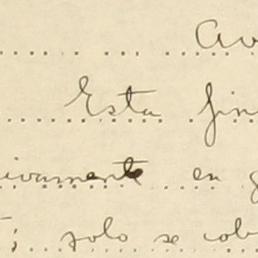 Av
Esta fin
ivamente en g
; solo se ob